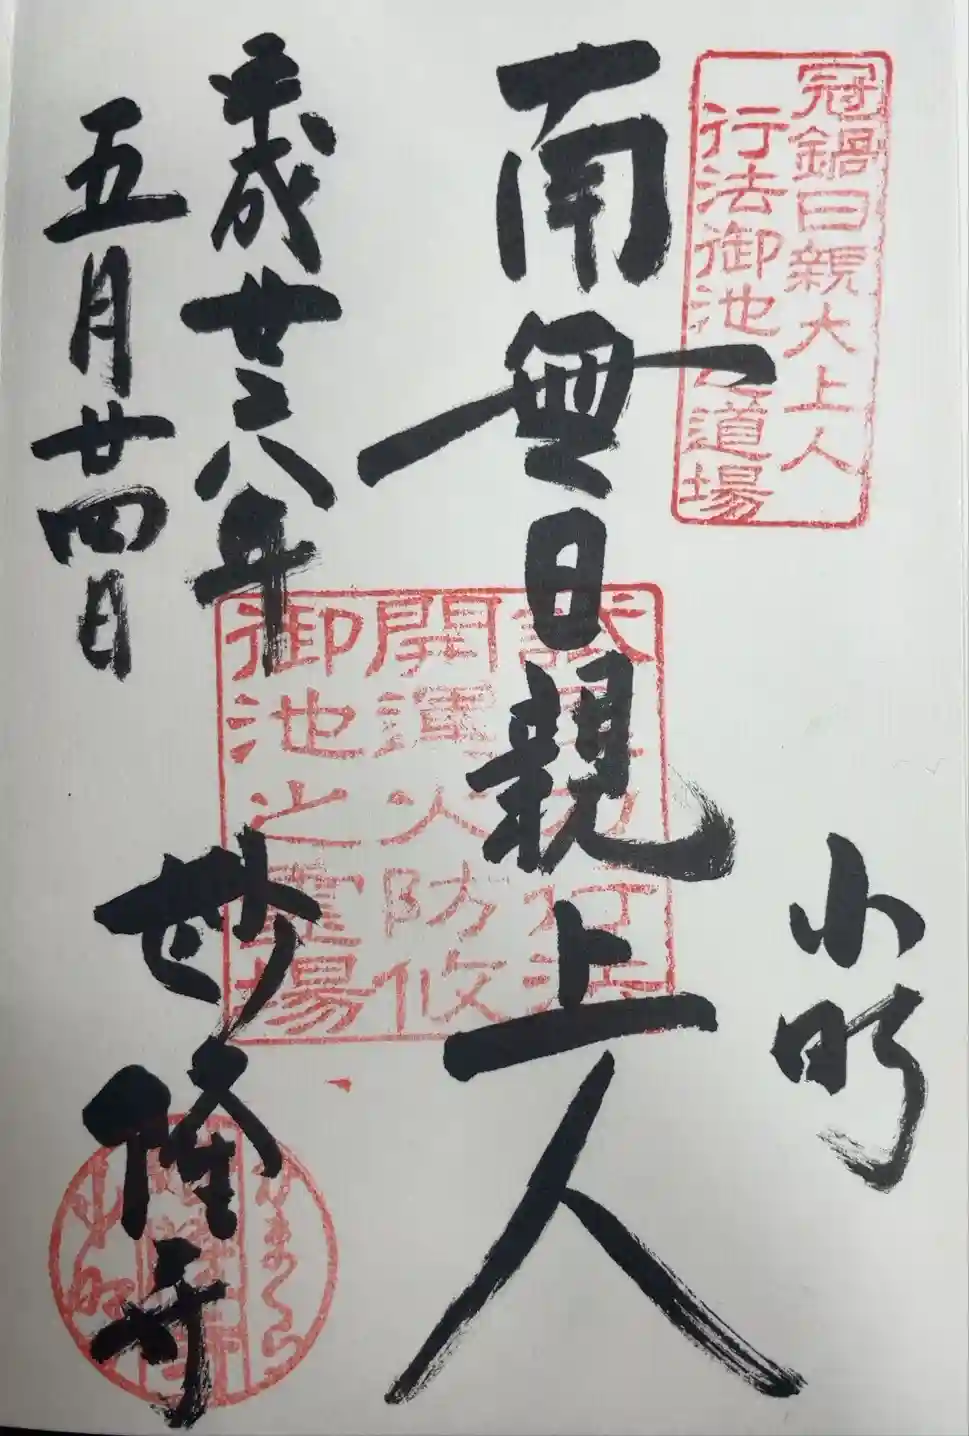 冠鍋日親大上人
行法御池之道場
小町
南無日親上人
平成廿六年
五月廿四日
開運火防攸
御池之霊場
妙隆寺
かまくら
小町